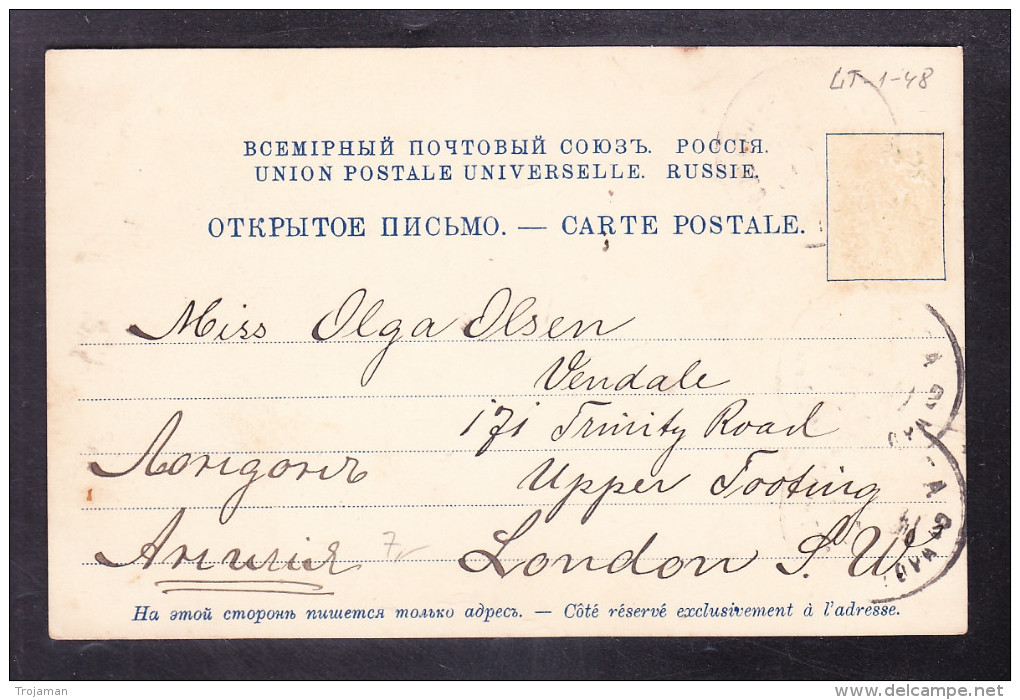 LT-1-48
ВСЕМІРНЫЙ ПОЧТОВЫЙ СОЮЗЪ. РОССІЯ.
UNION POSTALE UNIVERSELLE. RUSSIE.
ОТКРЫТОЕ ПИСЬМО. — CARTE POSTALE.
Miss Olga Olsen
Vendale
171 Trinity Road
Лондонъ
Upper Tooting
Англія
7
London S. W.
На этой сторонѣ пишется только адресъ. — Côté réservé exclusivement à l'adresse.
Trojaman
delcampe.net